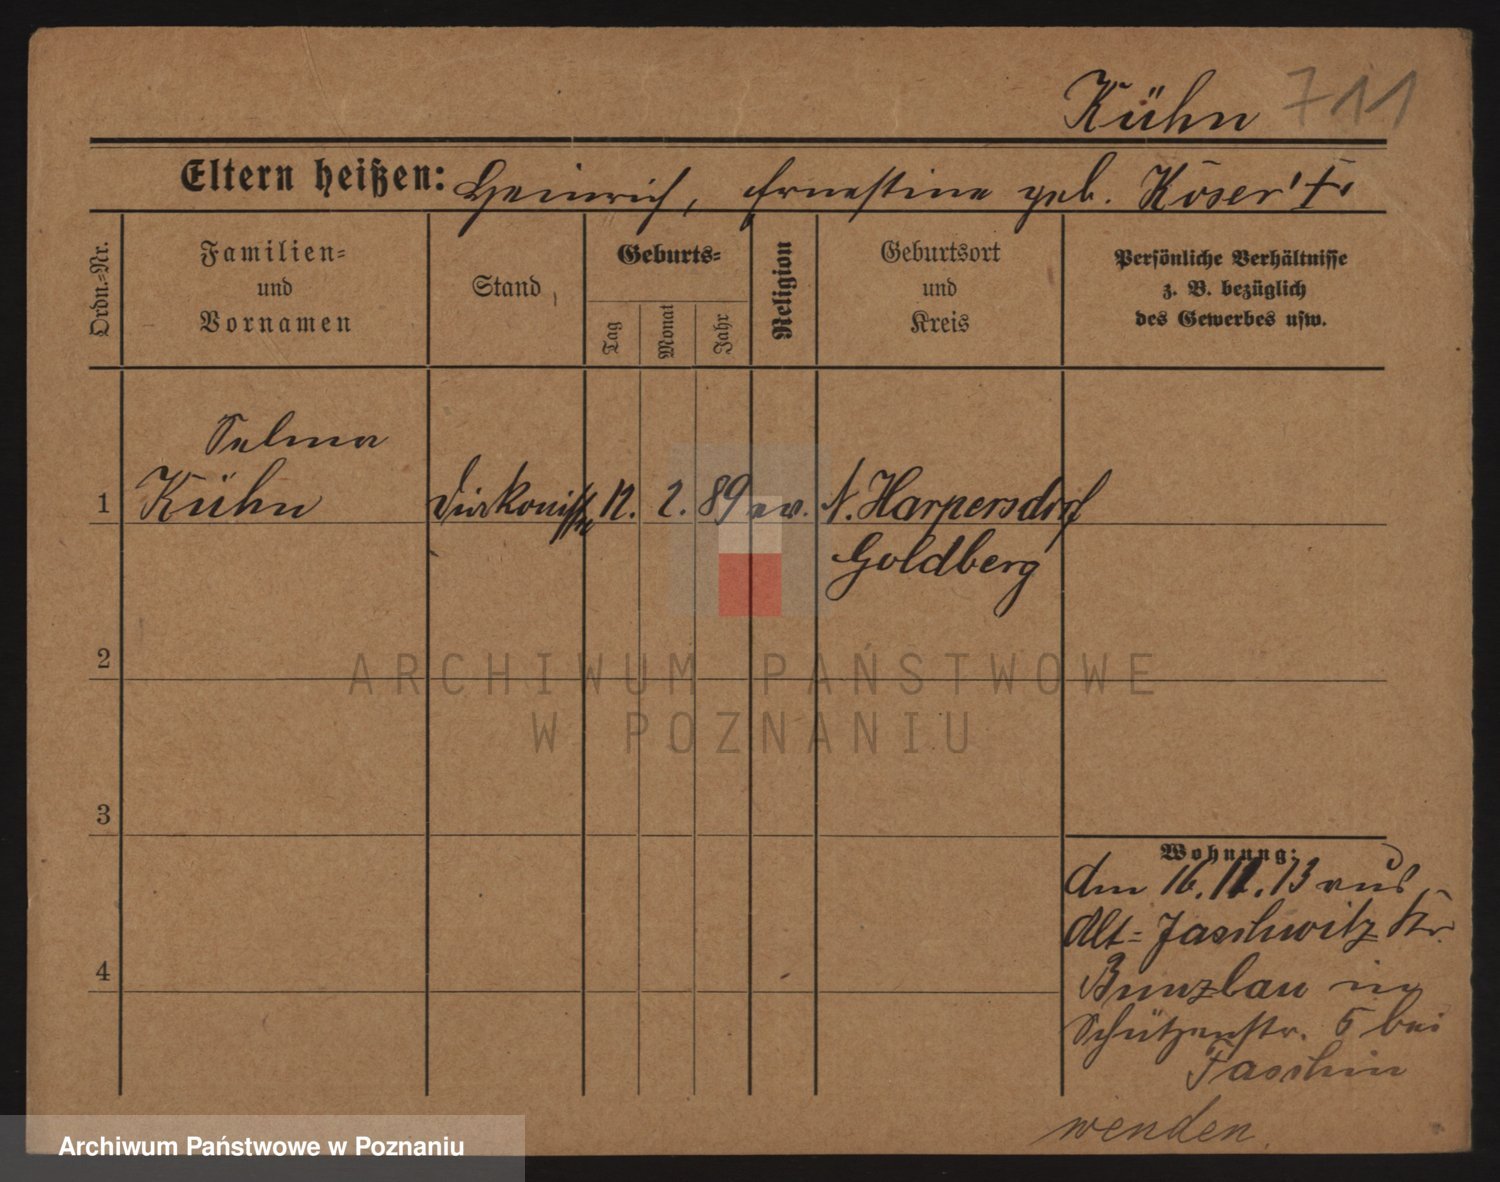 Kühn 711
Eltern heißen: Heinrich, Ernestine geb. Köser
Ordn.-Nr.
Familien-
und
Vornamen
Stand
Geburts-
Tag
Monat
Jahr
Religion
Geburtsort
und
Kreis
Persönliche Verhältnisse
z. B. bezüglich
des Gewerbes usw.
Selma
1 Kühn Diakonisse 12. 2. 89 ev. N. Harpersdorf
Goldberg
2
3
4
Wohnung:
Am 16. 13 aus
Alt-Jaschwitz Kr.
Bunzlau in
Schützenstr. 5 bei
wenden.
ARCHIWUM PAŃSTWOWE
W POZNANIU
Archiwum Państwowe w Poznaniu